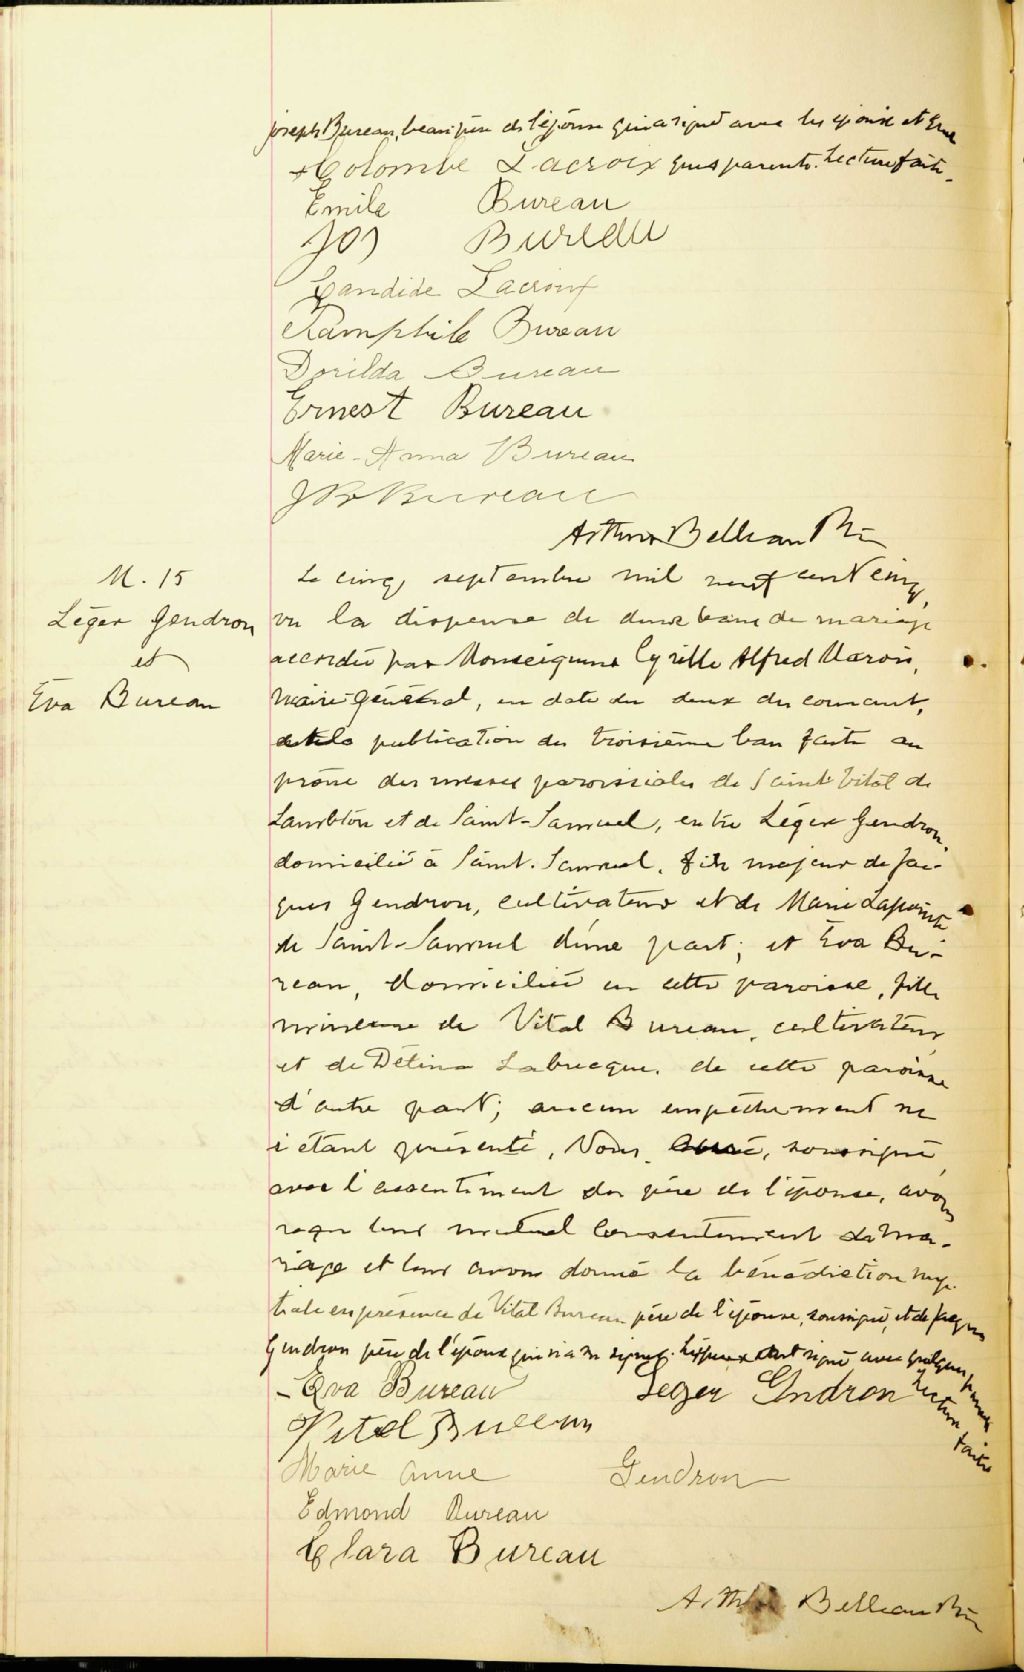 joseph Bureau, beau père de l'épouse qui a signé avec les époux et quel
Colombe Lacroix ques parents. Lecture faite.
Emile Bureau
Jos Bureau
Candide Lacroix
Pamphile Bureau
Dorilda Bureau
Ernest Bureau
Marie-Anna Bureau
J Bte Bureau
Arthur Belleau Ptre
M. 15
Léger Gendron
et
Eva Bureau
Le cinq septembre mil neuf cent cinq,
vu la dispense de deux bans de mariage
accordée par Monseigneur Cyrille Alfred Marois,
Vicaire général, en date du deux du courant,
et la publication du troisième ban faite au
prône des messes paroissiales de Saint Vital de
Lambton et de Saint-Samuel, entre Léger Gendron,
domicilié à Saint-Samuel, fils majeur de Jac-
ques Gendron, cultivateur et de Marie Lapointe
de Saint-Samuel d'une part; et Eva Bu-
reau, domiciliée en cette paroisse, fille
mineure de Vital Bureau, cultivateur
et de Délina Labrecque, de cette paroisse
d'autre part; aucun empêchement ne
s'étant présenté, Nous, curé, soussigné,
avec l'assentiment du père de l'épouse, avons
reçu leur mutuel consentement de ma-
riage et leur avons donné la bénédiction nup-
tiale en présence de Vital Bureau père de l'épouse, soussigné, et de Jacques
Gendron père de l'époux qui n'a su signer. Les époux ont signé avec quelques parents
Lecture faite
Eva Bureau Leger Gndron
Vital Bureau
Marie Anne Gendron
Edmond Bureau
Clara Bureau
Arthur Belleau Ptre